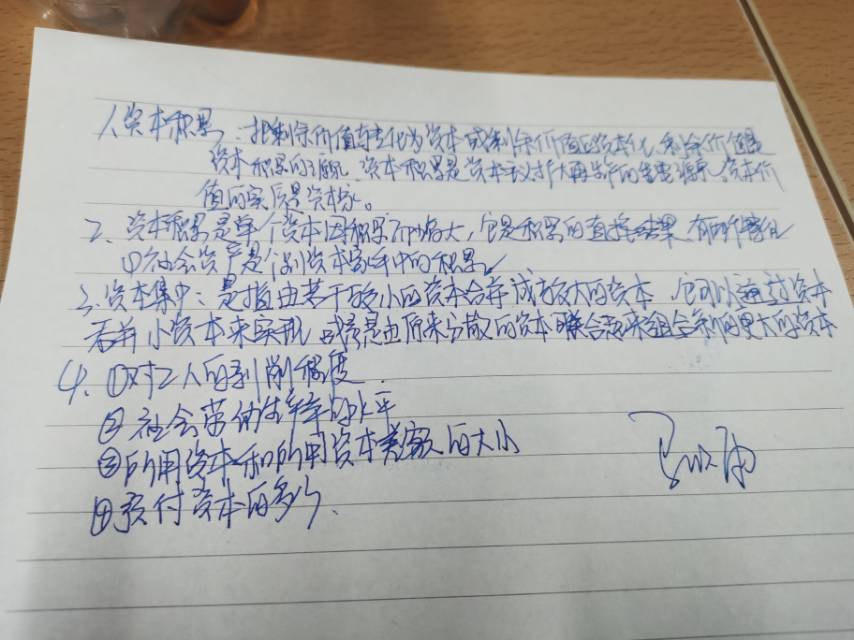 1、资本积累:把剩余价值转化为资本或剩余价值的资本化,剩余价值是
资本积累的源泉,资本积累是资本主义扩大再生产的重要源泉,资本价
值的实质是资本家。
2、资本积累是单个资本因积累而增大,它是积累的直接结果,有两个特征
①社会资产是个别资本家手中的积累
3、资本集中:是指由若干较小的资本合并成较大的资本,它可以通过资本
吞并小资本来实现,或者是由原来分散的资本联合起来组合新的更大的资本
4、①对工人的剥削程度.
②社会劳动生产率的水平
③所用资本和所用资本差额的大小
④预付资本的多少、